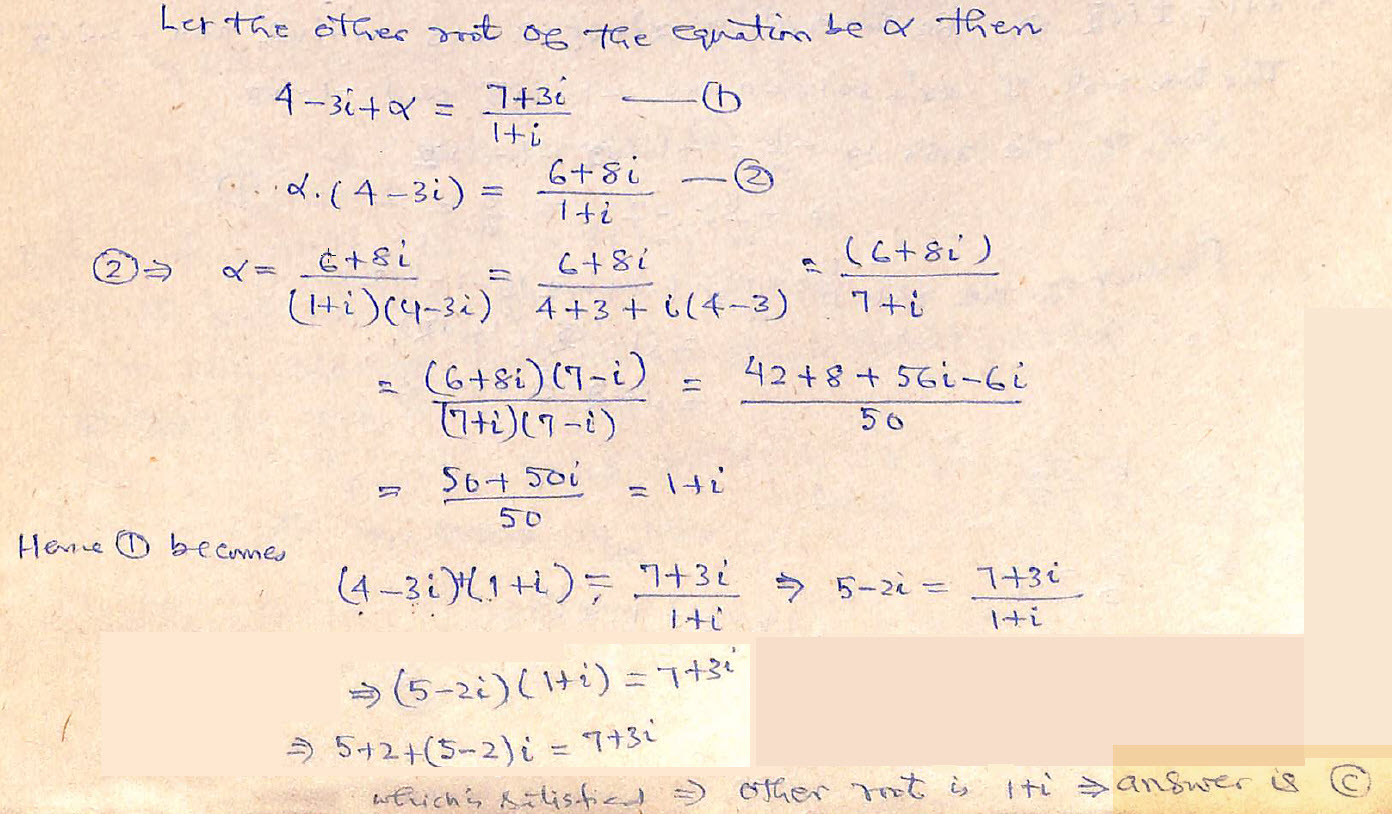 Let the other root of the equation be α then
4-3i+α = (7+3i)/(1+i) — ①
α.(4-3i) = (6+8i)/(1+i) — ②
②⇒ α = (6+8i)/((1+i)(4-3i)) = (6+8i)/(4+3+i(4-3)) = (6+8i)/(7+i)
= ((6+8i)(7-i))/((7+i)(7-i)) = (42+8+56i-6i)/50
= (50+50i)/50 = 1+i
Hence ① becomes
(4-3i)+(1+i) = (7+3i)/(1+i) ⇒ 5-2i = (7+3i)/(1+i)
⇒ (5-2i)(1+i) = 7+3i
⇒ 5+2+(5-2)i = 7+3i
which is satisfied ⇒ other root is 1+i ⇒ answer is Ⓒ